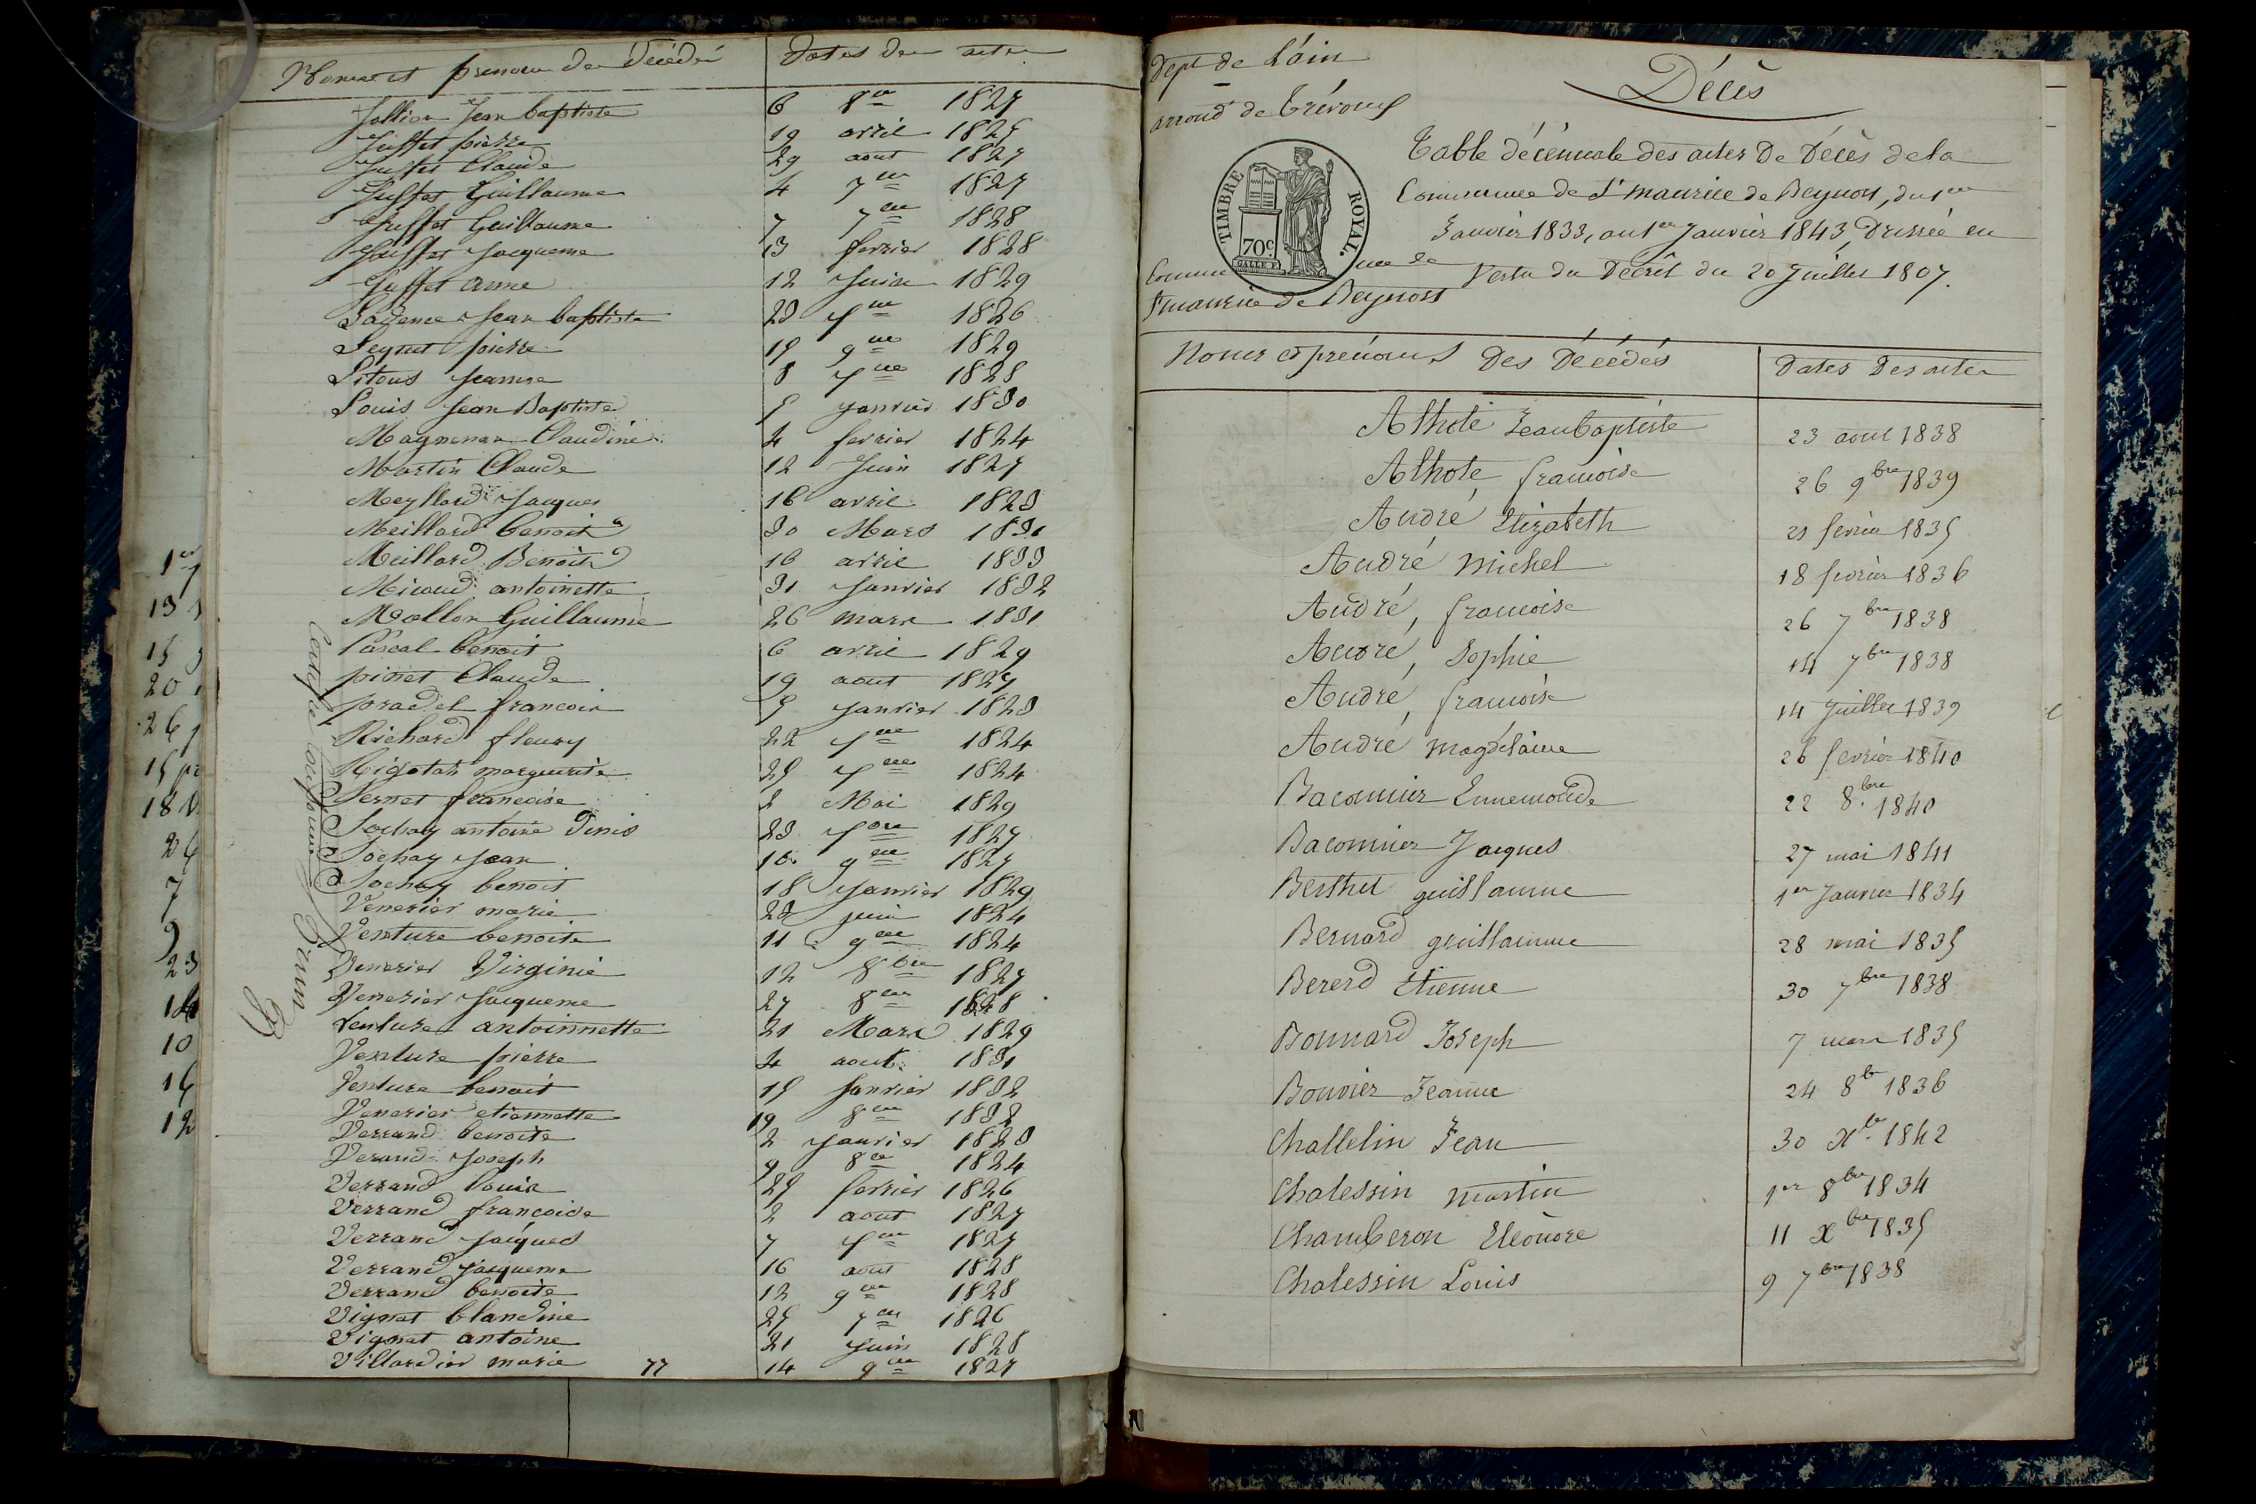 Noms et prenoms des Décédés Dates des actes
Jollion Jean baptiste 6 8bre 1827
Juffet pierre 19 avril 1825
Juffet Claude 29 aout 1827
Juffet Guillaume 4 7bre 1827
Juffet Guillaume 7 7bre 1828
Juffet Jacqueme 13 fevrier 1828
Juffet anne 12 Juin 1829
Jean baptiste 23 1826
Peynet pierre 15 9bre 1829
Pitous Jeanne 8 1828
Louis Jean Baptiste 5 Janvier 1830
Magnenan Claudine 4 fevrier 1824
Martin Claude 12 Juin 1827
Meyllard Jacques 16 avril 1823
Meillard benoit 30 Mars 1831
Meillard Benoit 16 avril 1833
Micoud antoinette 31 Janvier 1832
Mollon Guillaume 26 mars 1831
Pascal benoit 6 avril 1829
pinet Claude 19 aout 1827
pradel francois 5 Janvier 1823
Richard fleury 22 1824
Rigotat marguerite 25 1824
Sernet francoise Mai 1829
Sochay antoine Denis 23 1827
Sochay Jean 10 9bre 1827
Sochay benoit 18 Janvier 1829
Venerier marie 23 juin 1824
Venture benoite 11 9bre 1824
Venerier Virginie 12 8bre 1827
Venerier Jacqueme 27 8bre 1828
Venture antoinnette 21 Mars 1829
Venture pierre 4 aout 1831
Venture benoit 15 Janvier 1832
Venerier etiennette 19 8bre 1832
Verrand benoite 2 Janvier 1823
Verand Joseph 9 8bre 1824
Verrand Louis 25 fevrier 1826
Verrand francoise 2 aout 1827
Verrand Jacques 7 1827
Verrand Jacqueme 16 aout 1828
Verrand benoite 12 9bre 1828
Vignat blandine 25 7bre 1826
Vignat antoine 21 Juin 1828
Villardier marie 77 14 9bre 1827
Certifié conforme
1er
13
15
20
26
15
18
26
7
9
23
14
10
15
12
Dept de l'ain
arrond de trévoux
Décès
TIMBRE ROYAL.
70c.
Commune de
St maurice de Beynost
Table décennale des actes De Décès de la
Commune de St maurice de Beynost, du 1er
Janvier 1833, au 1er Janvier 1843, Dressée en
Vertu du Décrêt du 20 Juillet 1807.
Noms et prénoms Des Décédés Dates Des actes
Alhote Jean baptiste 23 aout 1838
Alhote, francoise 26 9bre 1839
André, Elizabeth 21 fevrier 1835
André michel 18 fevrier 1836
André, francoise 26 7bre 1838
André, Sophie 14 7bre 1838
André, francoise 14 Juillet 1839
André, magdelaine 26 fevrier 1840
Bacomier Ennemonde 22 8bre 1840
Bacomier Jacques 27 mai 1841
Berthet guillaume 1er Janvier 1834
Bernard guillaume 28 mai 1835
Bererd Etienne 30 7bre 1838
Bonnard Joseph 7 mars 1835
Bouvier Jeanne 24 8b 1836
Challelin Jean 30 Xbr 1842
Chalessin martin 1er 8bre 1834
Chamberon Eléonore 11 Xbre 1835
Chalessin Louis 9 7bre 1838